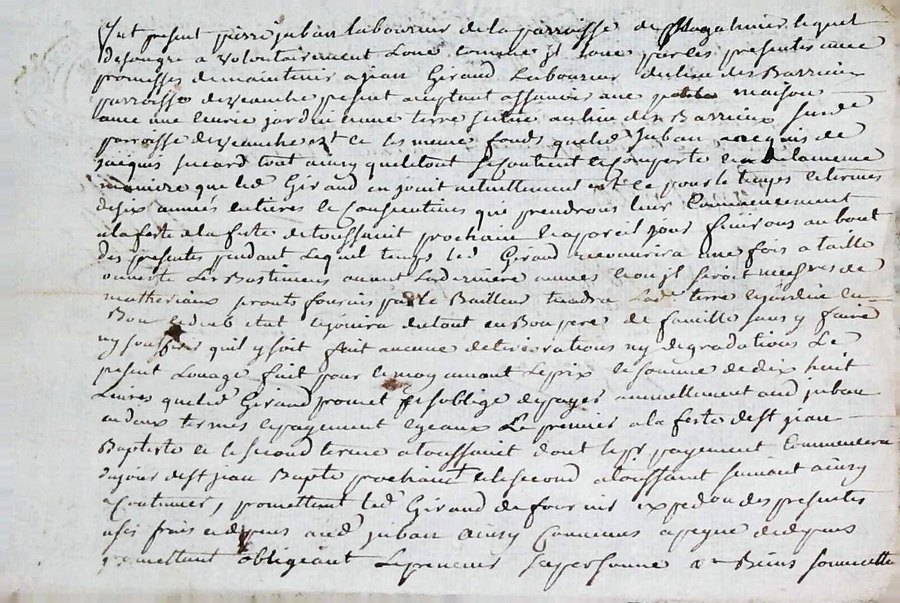 fut present pierre juban laboureur de la parroisse de magalinier lequel
de son gre a volontairement Loué comme jl Loue par les presentes avec
promesses de maintenir a jean Giraud Laboureur du lieu des Barrieux
parroisse de veauche present acceptant assavoir une petite maison
avec une Ecurie jardin et une terre scitué au lieu des Barrieux susde
parroisse de veauche et ce les meme fonds que led Juban acquis de
jacques sicard tout ainsy quil tout se contient et comporte et de la meme
maniere que led Giraud en jouit actuellement et ce pour le temps et termes
de six années entieres et Consecutives qui prendront leur Commencement
a la feste a la feste de toussaint prochain et a pareil jour finiront au bout
des presentes pendant Lequel temps led Giraud recouvrira une fois a taille
ouverte Les Bastimens avant La derniere année et ou jl seroit necessaire de
matheriaux seronts fournis par le Bailleur tiendra lade terre et jardin en
Bon et deub etat et jouira du tout en Bon pere de famille sans y faire
ny souffrir quil y soit fait aucune deteriorations ny degradations Le
present Louage fait pour et moyennant le prix et somme de dix huit
Livres que led Giraud promet et soblige de payer annuellement aud juban
en deux termes et payement egeaux Le premier a la feste de st jean
Baptiste et le second terme a toussaint dont le pr payement Commencera
du jour de st jean Bapte prochain et le second a toussaint suivant ainsy
a Coutinuer, promettant led Giraud de fournir expedon des presentes
a ses frais et depens aud juban ainsy Convenu a peyne de depens
promettant obligeant Le preneur sa personne et Biens soumettte